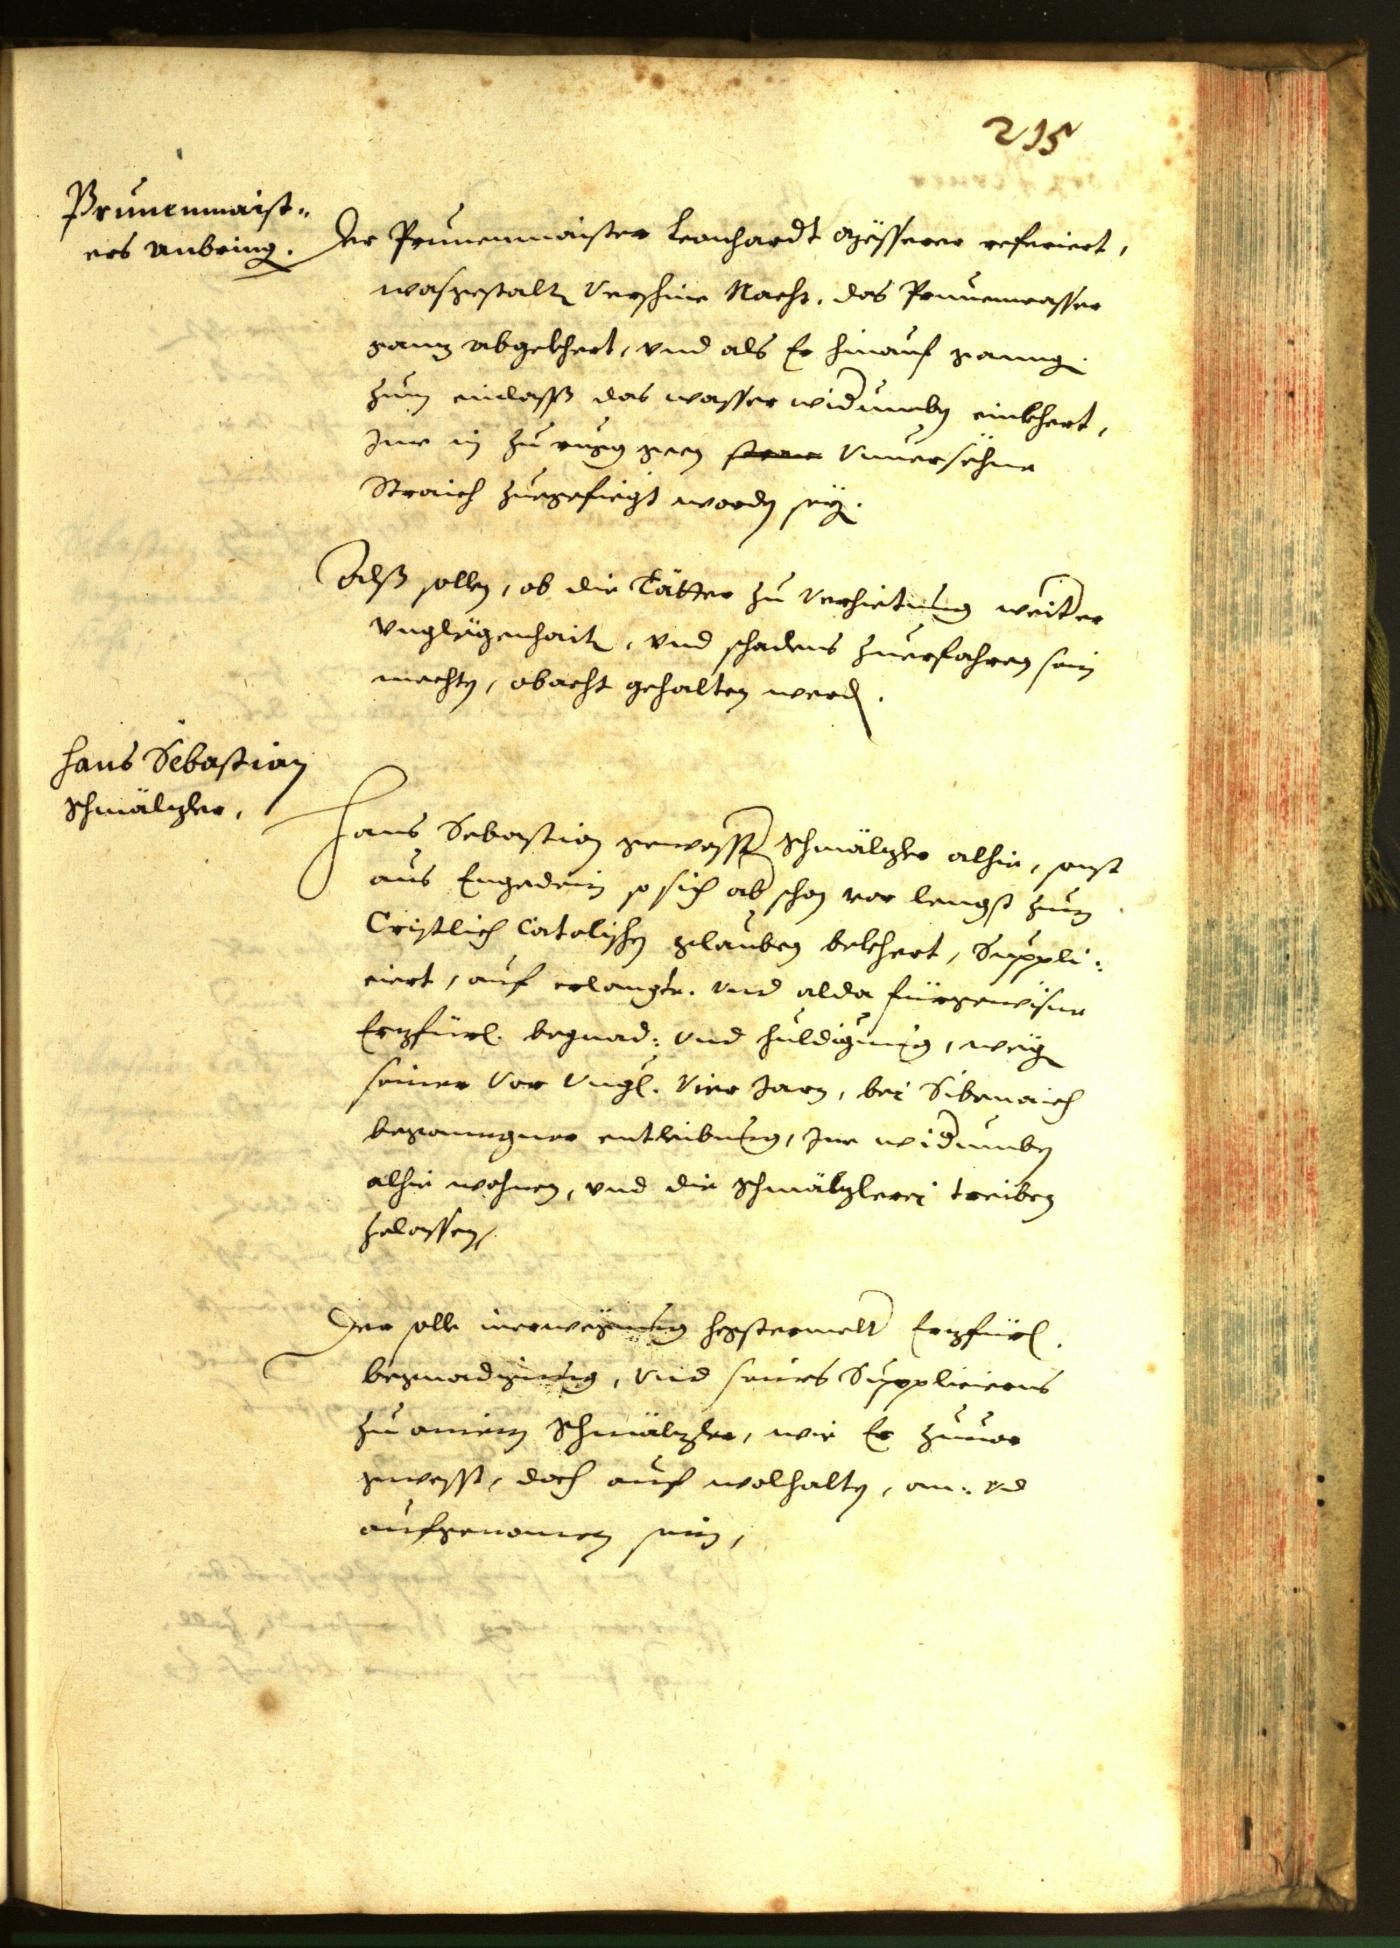 215
Prunenmaist-
ers Anbring.
Der Prunenmaister Leonhardt referiert,
wasgestalt Verschine Nacht, das Prunenwasser
ganz abgekhert, vnd als Er hinauf ganng
zum einlasß das wasser widerumben einkhert,
Ime in zu rugg geen Vnuersehne
Straich zuegefiegt worden sey.
Eß sollen, ob die Tätter zu Verhietung weiter
Vnglegenhait, vnd schadens zuerfahren sein
mechten, obacht gehalten werden.
Hans Sebastian
Schmälzler.
Hans Sebastian gewesster Schmälzler alhie, sonst
aus Engedein so sich aber schon vor lengst zum
Cristlich Catolischen glauben bekhert, Suppli-
ciert, auf erlangte vnd alda fürgewisne
Erzfürl. begnad: vnd huldigung, weg
seiner vor Vngl. Vier Jarn, bei Sibenaich
beganngner entleibung, Ine widerumben
alhie wohnen, vnd die Schmälzlerei treiben
zelassen,
Der solle inerwegung hegstermelter Erzfürl.
begnadigung, vnd seines Supplicierens
zu ainem Schmälzler, wie Er zuuor
gwesst, doch auf wolhalten, an- vnd
aufgenomen sein,